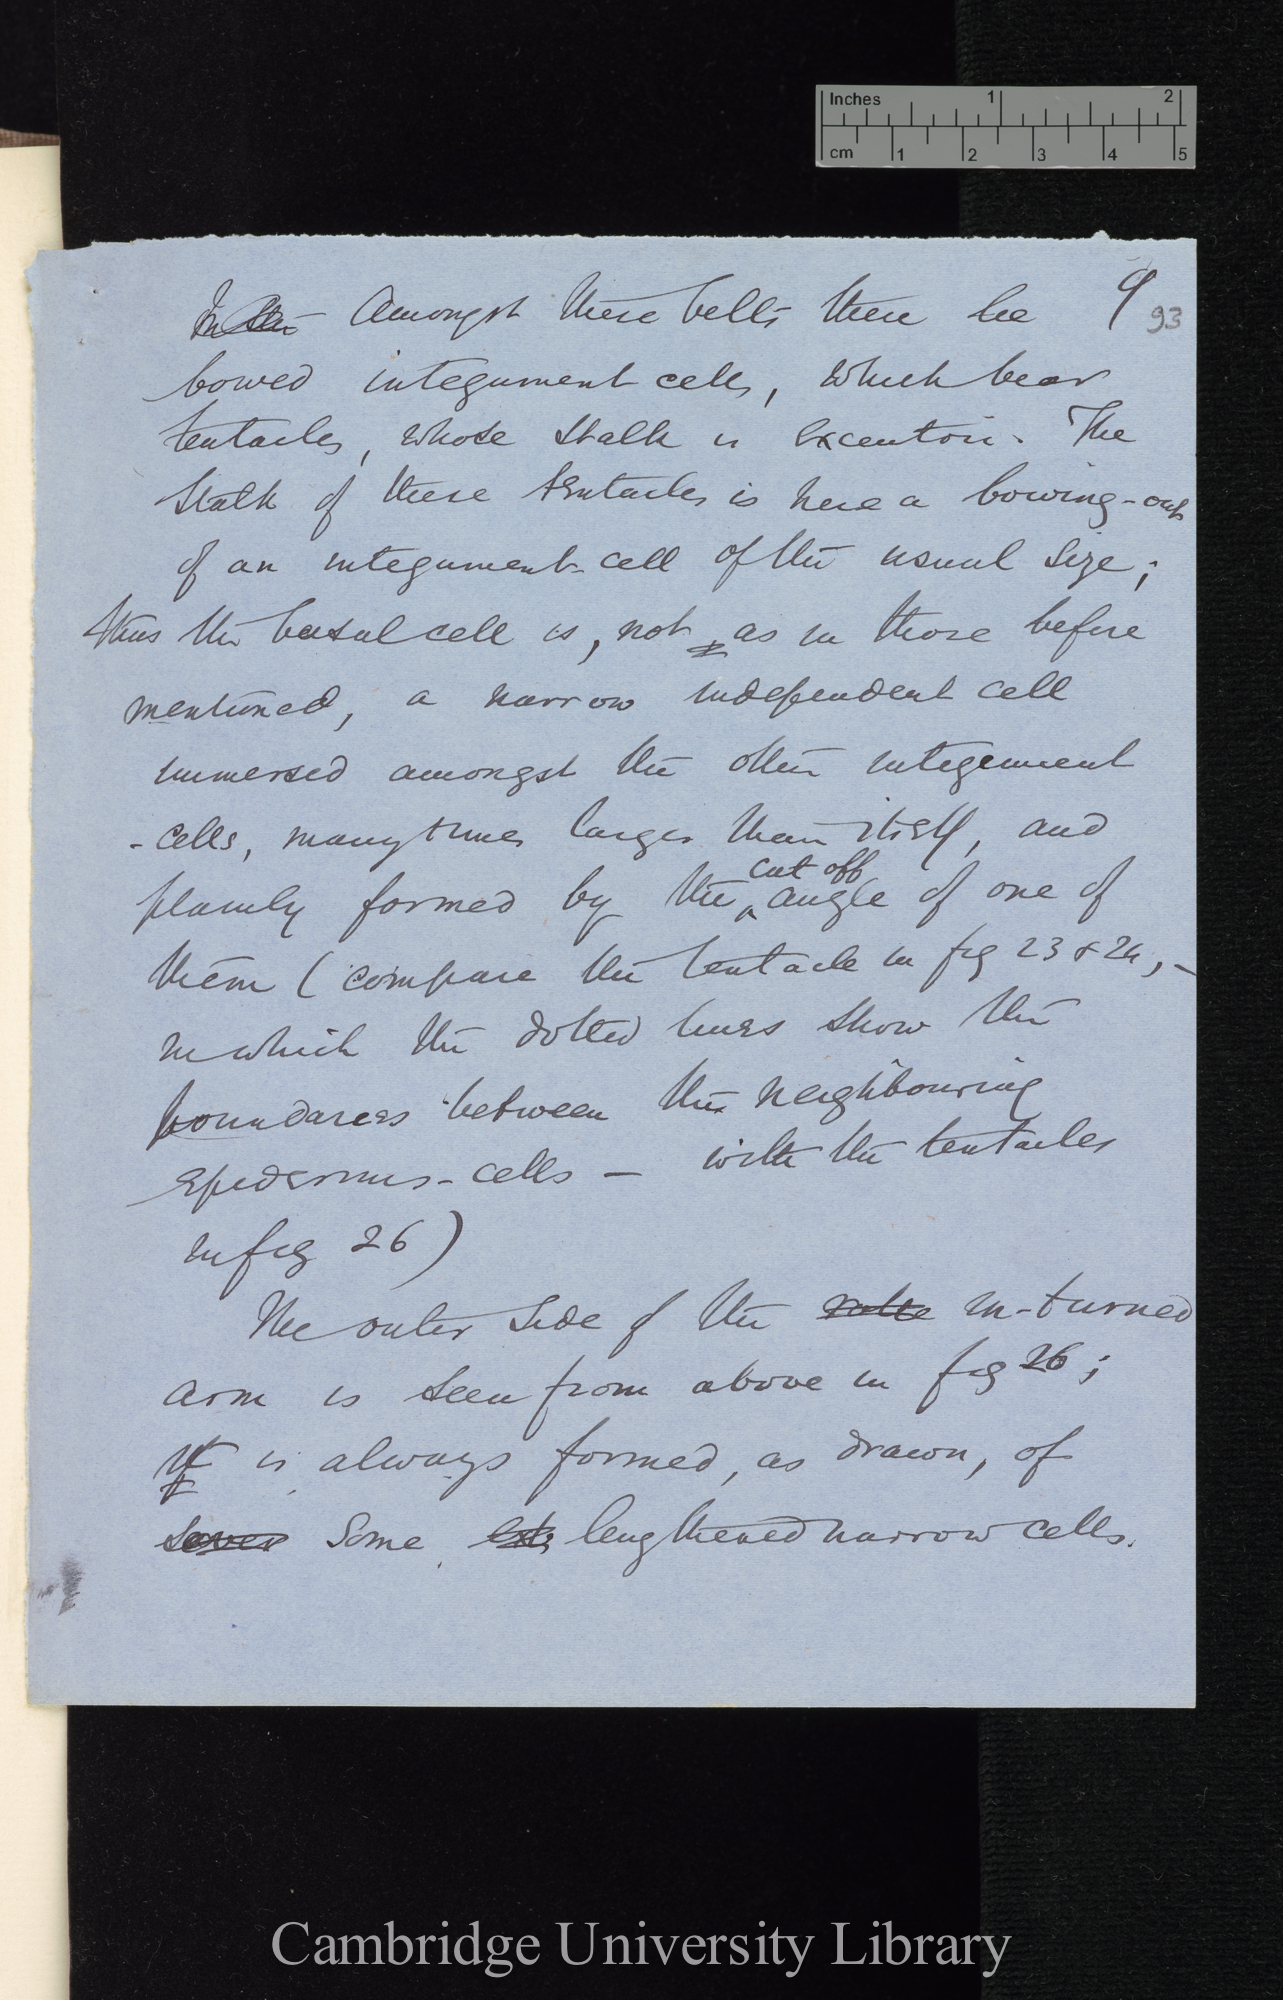 Inches 1 2
cm 1 2 3 4 5
9
93
Amongst these bells there lie
bowed integument cells, which bear
tentacles, whose stalk is excentric. The
stalk of these tentacles is here a bowing-out
of an integument-cell of the usual size;
thus the basal cell is, not as in those before
mentioned, a narrow independent cell
immersed amongst the other integument
-cells, many times larger than itself, and
cut off
plainly formed by the angle of one of
them (compare the tentacle in fig 23 & 24, -
in which the dotted lines show the
boundaries between the neighbouring
epidermis-cells — with the tentacles
in fig 26)
The outer side of the in-turned
arm is seen from above in fig 26;
It is always formed, as drawn, of
sever some lengthened narrow cells.
Cambridge University Library